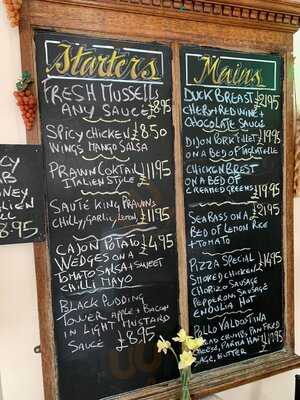 Starters
FRESH MUSSELS
ANY SAUCE £8.95
SPICY CHICKEN £8.50
WINGS MANGO SALSA
PRAWN COCKTAIL £11.95
ITALIAN STYLE
SAUTÉ KING PRAWNS
CHILLY, GARLIC, LEMON £11.95
CAJON POTATO £4.95
WEDGES ON A
TOMATO SALSA + SWEET
CHILLI MAYO
BLACK PUDDING
TOWER APPLE + BACON
IN LIGHT MUSTARD
SAUCE £8.95
Mains
DUCK BREAST £21.95
CHERRY + RED WINE +
CHOCOLATE SAUCE
DIJON PORK FILLET £19.95
ON A BED OF TAGLIATELLE
CHICKEN BREST
ON A BED OF
CREAMED GREENS
£19.95
SEABASS ON A £21.95
BED OF LEMON RICE
+ TOMATO
PIZZA SPECIAL £14.95
SMOKED CHICKEN
CHORIZO SAUSAGE
PEPPERONI SAUSAGE
ENDULIA HOT
POLLO VALDOSTINA
BREAD CRUMBS, PAN FRIED
CHEESE, PARMA HAM
SAGE, BUTTER £17.95
8.95